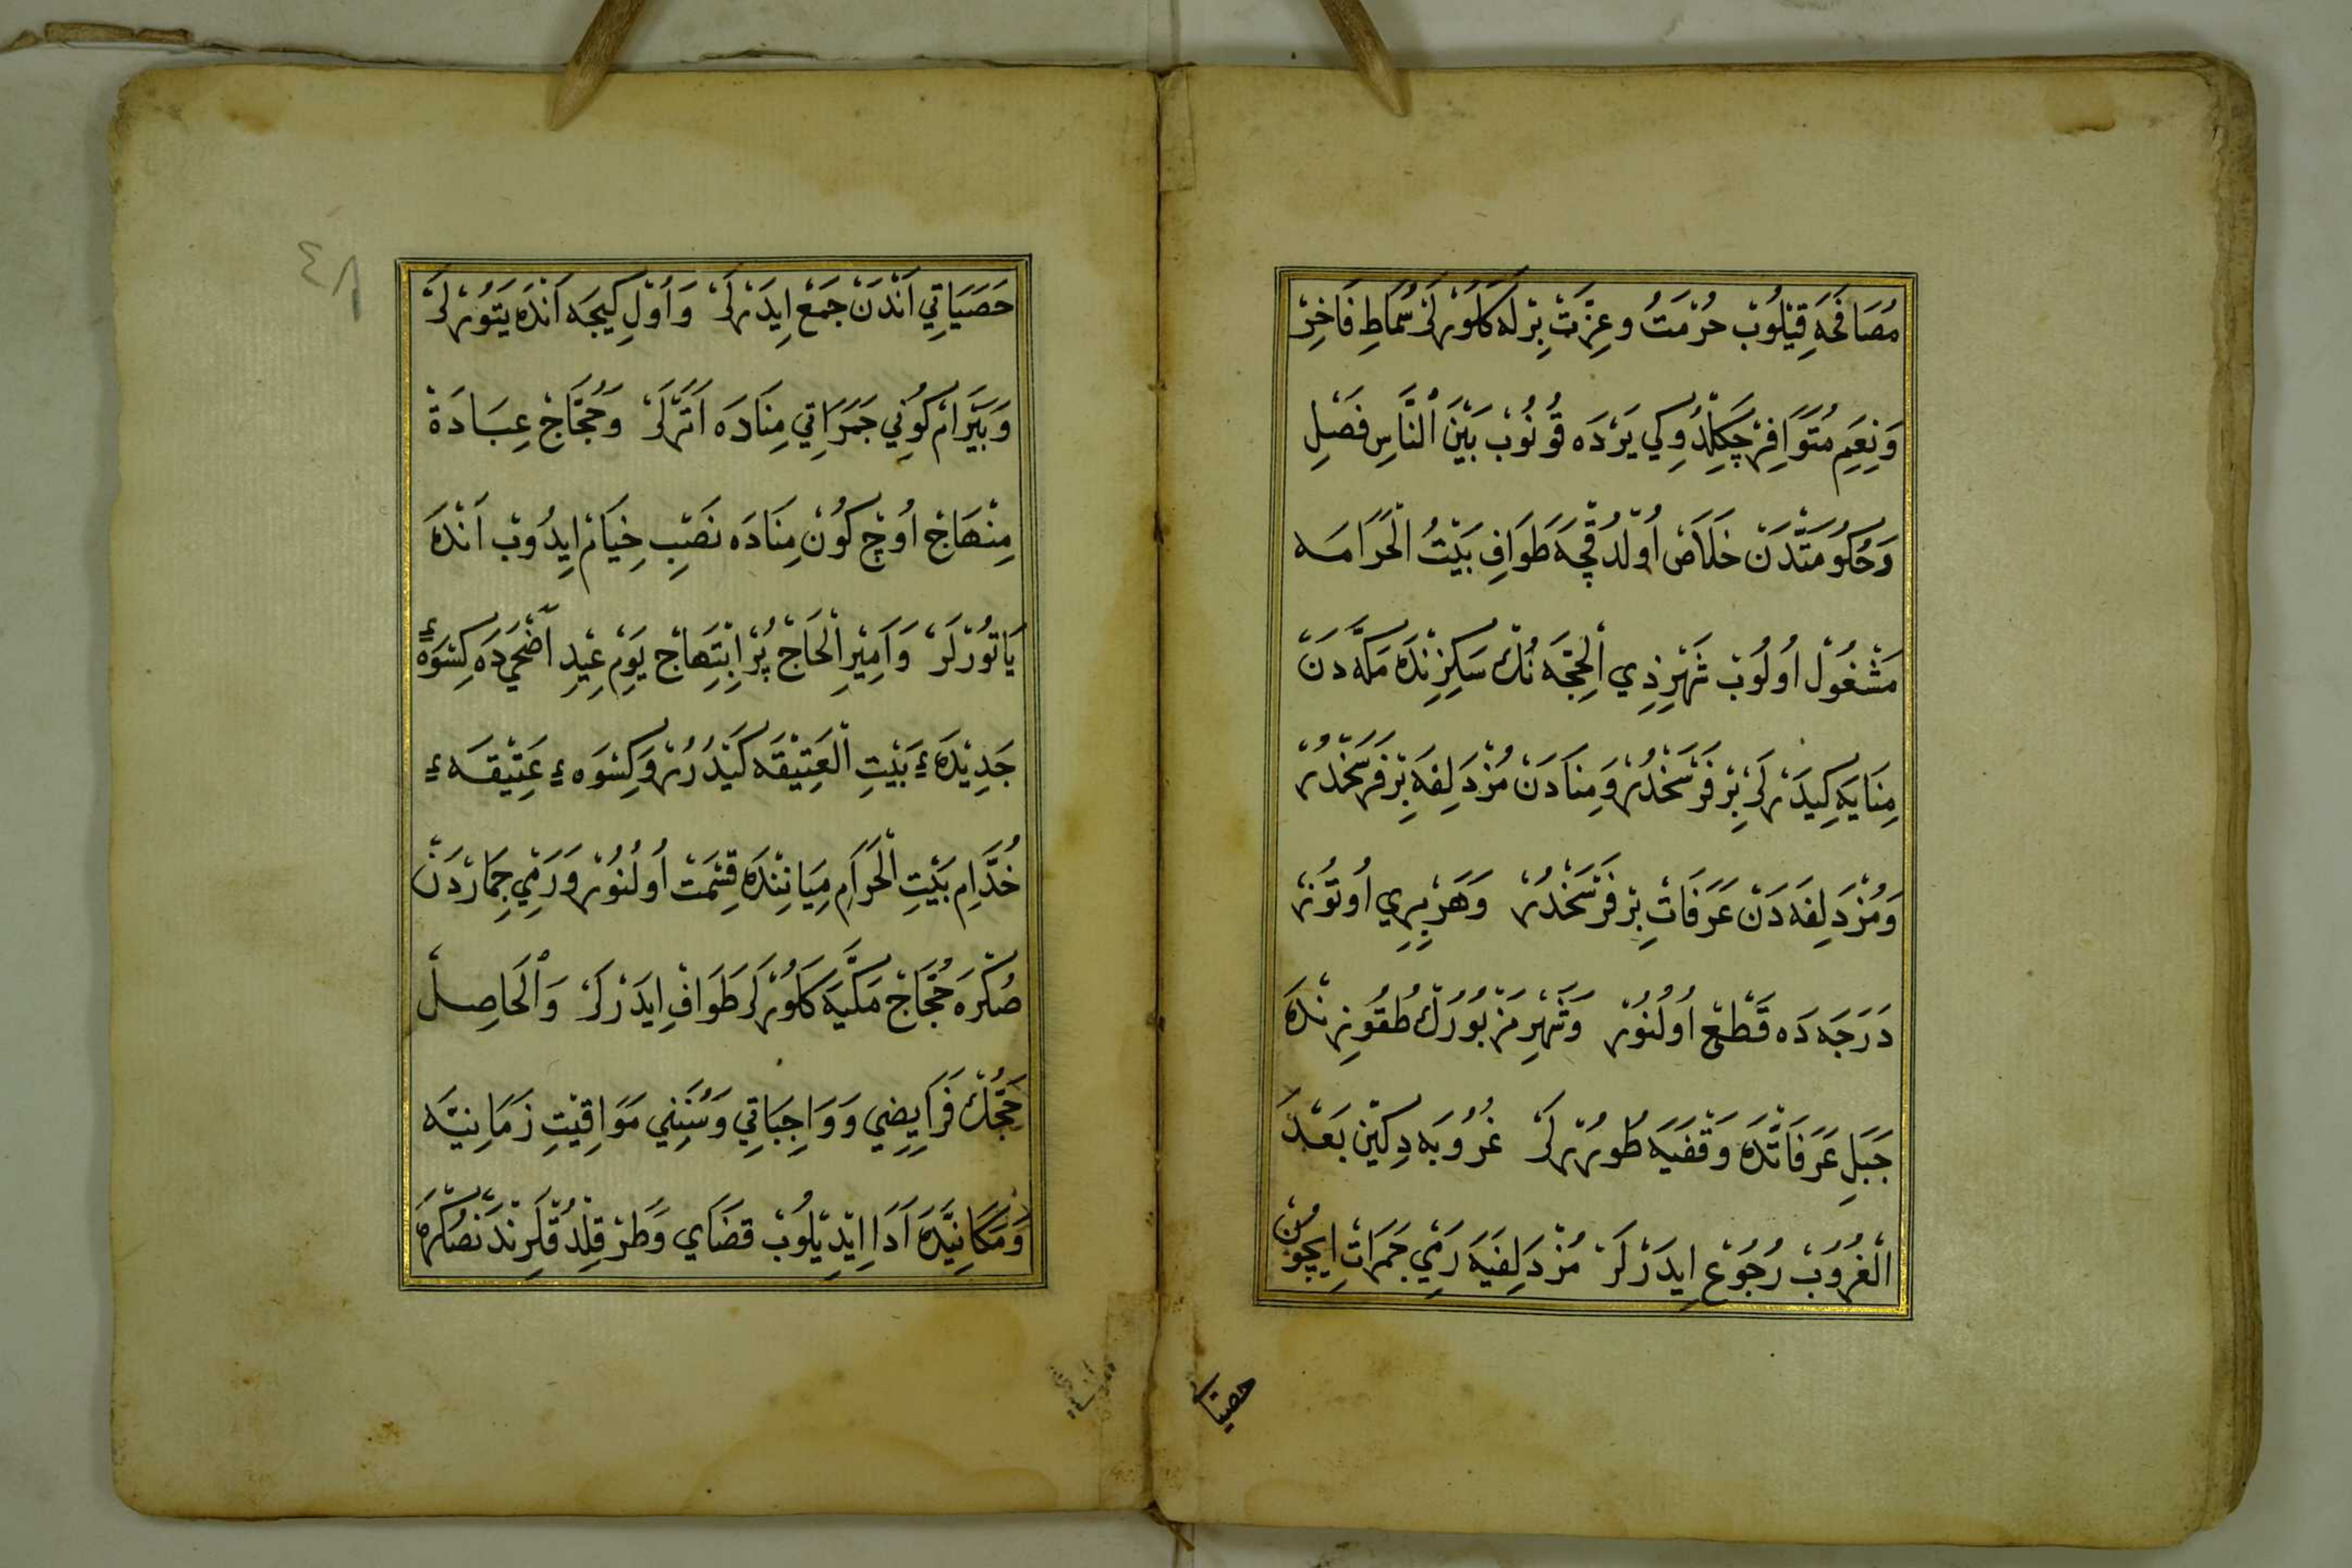 مُصَافَحَه قِيْلُوبْ حُرْمَتُ و عِزَّتْ بِرْلَه كَلُورْلَرْ سُمَاطِ فَاخِرْ
وَنِعَمِ مُتَوَافِرْ چَكِلْدُوكِي يَرْدَه قُونُوبْ بَيْنَ النَّاسِ فَصْلِ
وَحُكُومَتْدَنْ خَلَاصْ اُولْدُقْچَه طَوَافِ بَيْتُ الْحَرَامَه
مَشْغُولْ اُولُوبْ شَهْرِ ذِي الْحِجَّه نُكْ سَكِزِنْدَه مَكَّه دَنْ
مِنَايَه كِيدَرْلَرْ بِرْ فَرْسَخْدُرْ وَمِنَادَنْ مُزْدَلِفَه بِرْ فَرْسَخْدُرْ
وَمُزْدَلِفَه دَنْ عَرَفَاتِ بِرْ فَرْسَخْدُرْ وَهَرْ بِرِي اُوتُوزْ
دَرَجَه دَه قَطْعْ اُولُنُورْ وَشَهْرِ مَزْبُورُكْ طُقُوزِنْدَه
جَبَلِ عَرَفَاتْدَه وَقْفَيَه طُورُرْلَرْ غُرُوبَه دِكِينْ بَعْدَ
الْغُرُوبْ رُجُوعْ اِيدَرْلَرْ مُزْدَلِفَيَه رَمْيِ جَمَرَاتِ اِيچُونْ
حصيا
٤٨
حَصَيَاتِي اَنْدَنْ جَمْعْ اِيدَرْلَرْ وَاُولْ كِيجَه اَنْدَه يَتُورْلَرْ
وَبَيْرَامْ كُونِي جَمَرَاتِي مِنَادَه اَتَرْلَرْ وَحُجَّاجْ عِبَادَةْ
مِنْهَاجْ اُوچْ كُونْ مِنَادَه نَصْبِ خِيَامْ اِيدُوبْ اَنْدَه
يَاتُورْلَرْ وَاَمِيْرِ الْحَاجْ پُرْ اِبْتِهَاجْ يَوْمِ عِيْدِ اَضْحَىدَه كِسْوَهٔ
جَدِيْدَهٔ بَيْتِ الْعَتِيْقَه كَيْدُرُرْ وَكِسْوَهٔ عَتِيْقَهٔ
خُدَّامِ بَيْتِ الْحَرَامِ مِيَانِنْدَه قِسْمَتْ اُولُنُورْ وَرَمْيِ جِمَارْدَنْ
صُكْرَه حُجَّاجْ مَكَّيَه كَلُورْلَرْ طَوَافْ اِيدَرْلَرْ وَالْحَاصِلْ
حَجُّكْ فَرَايِضِي وَوَاجِبَاتِي وَسُنَنِي مَوَاقِيْتِ زَمَانِيَّه
وَمَكَانِيَّدَه اَدَا اِيْدِيْلُوبْ قَضَاي وَطَرْ قِلْدُقْلَرِنْدَنْصُكْرَه